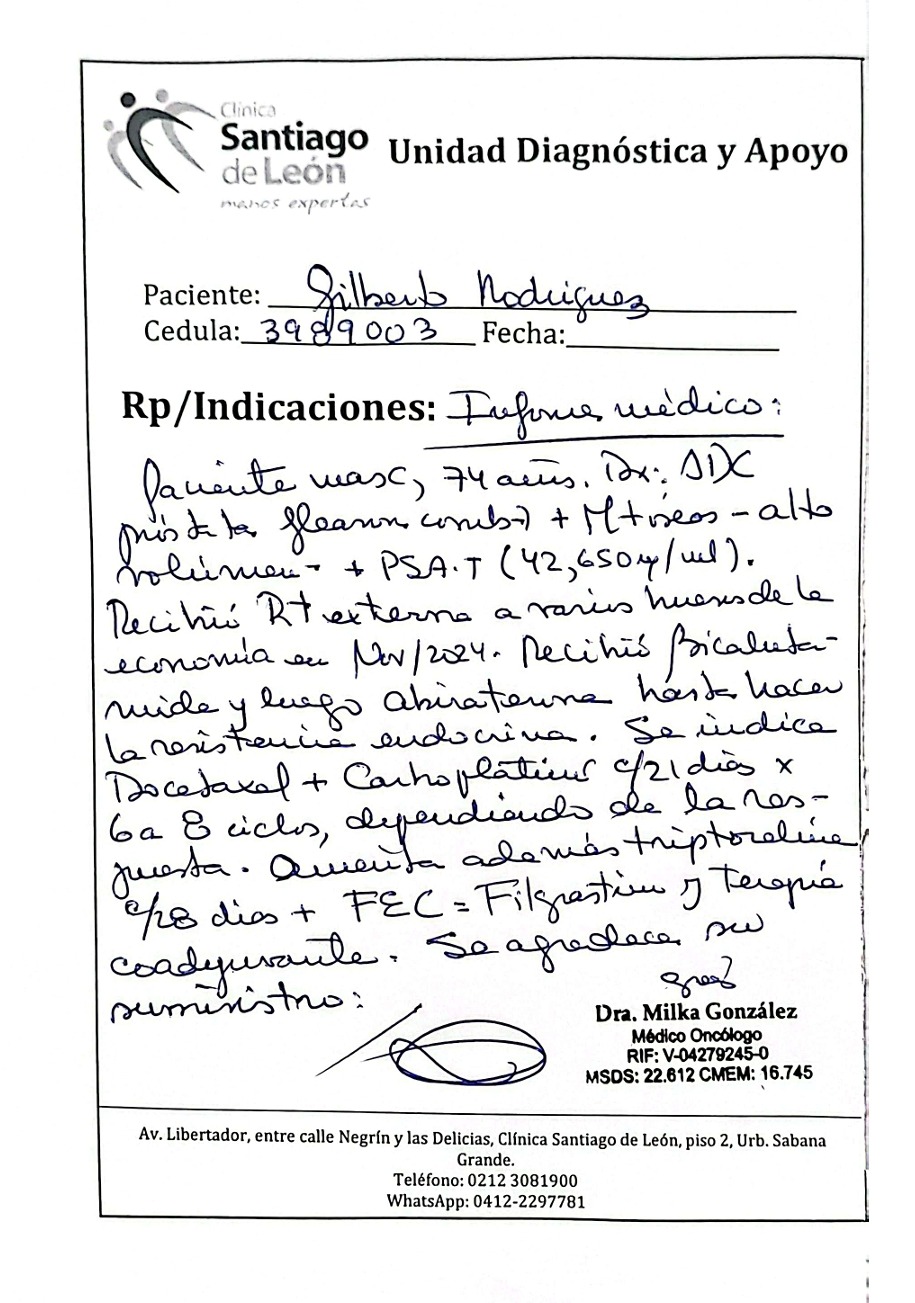 Clínica
Santiago
de León
manos expertas
Unidad Diagnóstica y Apoyo
Paciente: Gilberto Rodriguez
Cedula: 3989003 Fecha:
Rp/Indicaciones: Informe médico:
Paciente masc, 74 años. Dx: ADC
próstata Gleason comb 7 + Mt óseas - alto
volúmen - + PSA.T (42,650 ng/ml).
Recibió Rt externa a varios huesos de la
economía en Nov/2024. Recibió Bicaluta-
mida y luego abiraterona hasta hacer
la resistencia endocrina. Se indica
Docetaxel + Carboplatino c/21 días x
6 a 8 ciclos, dependiendo de la res-
puesta. Amerita además triptorelina
c/28 días + FEC = Filgrastim y Terapia
coadyuvante. Se agradece su
suministro:
Dra. Milka González
Médico Oncólogo
RIF: V-04279245-0
MSDS: 22.612 CMEM: 16.745
Av. Libertador, entre calle Negrín y las Delicias, Clínica Santiago de León, piso 2, Urb. Sabana
Grande.
Teléfono: 0212 3081900
WhatsApp: 0412-2297781